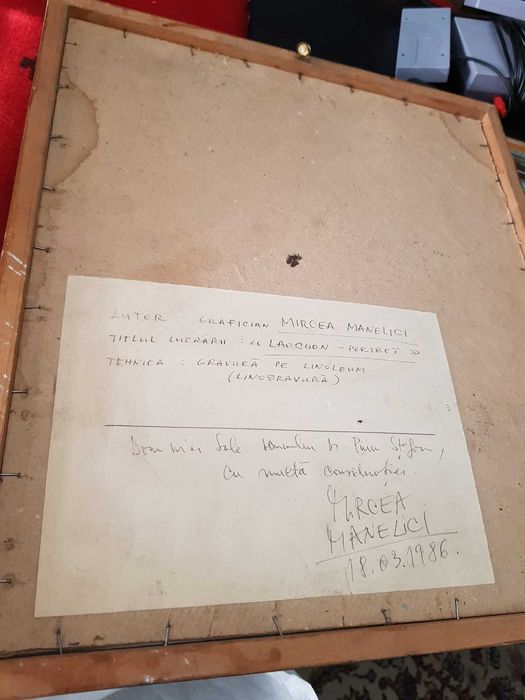 AUTOR : GRAFICIAN MIRCEA MANELICI
TITLUL LUCRARII : « LAOCOON - PORTRET »
TEHNICA : GRAVURĂ PE LINOLEUM
(LINOGRAVURĂ)
Domniei Sale domnului dr. Puiu Ștefan,
cu multă considerație.
MIRCEA
MANELICI
18.03.1986.